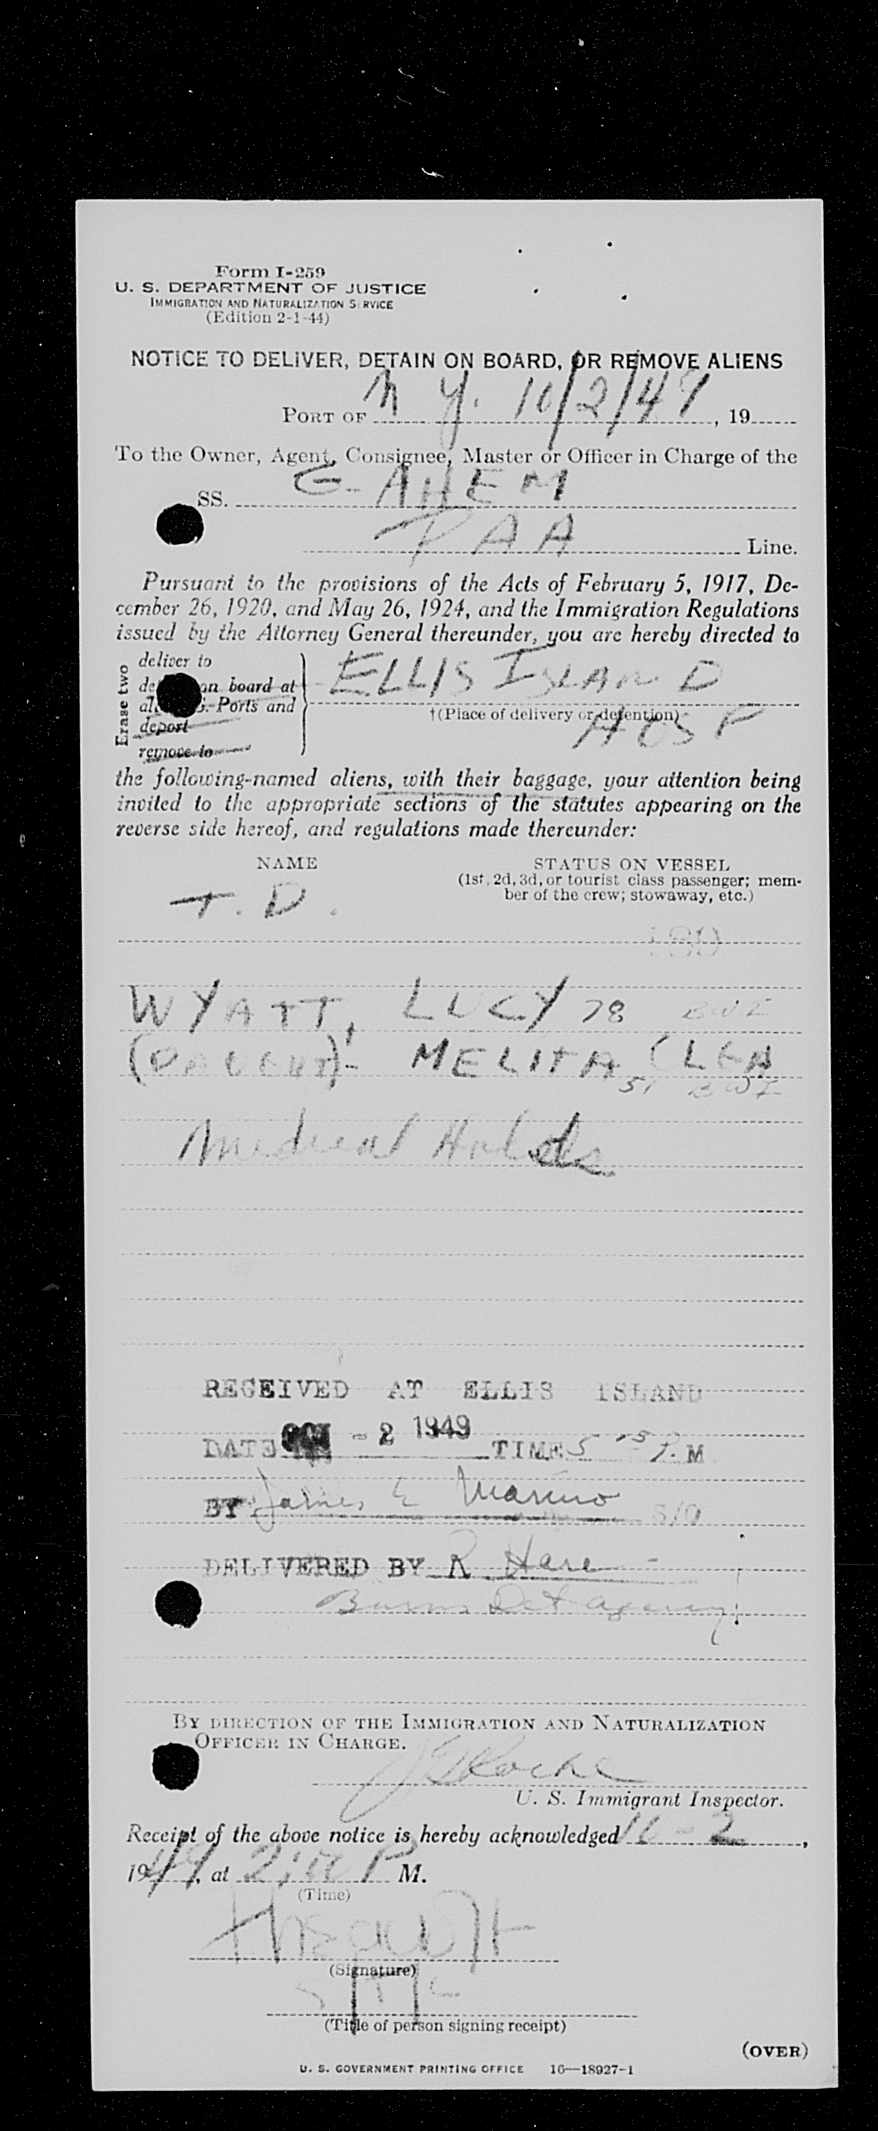 Form I-259
U. S. DEPARTMENT OF JUSTICE
IMMIGRATION AND NATURALIZATION SERVICE
(Edition 2-1-44)
NOTICE TO DELIVER, DETAIN ON BOARD, OR REMOVE ALIENS
PORT OF N Y. 10/2/49, 19
To the Owner, Agent, Consignee, Master or Officer in Charge of the
SS. G-AHEM
PAA Line.
Pursuant to the provisions of the Acts of February 5, 1917, De-
cember 26, 1920, and May 26, 1924, and the Immigration Regulations
issued by the Attorney General thereunder, you are hereby directed to
Erase two
deliver to
on board at
Ports and
deport
remove to
ELLIS ISLAND
†(Place of delivery or detention)
HOSP
the following-named aliens, with their baggage, your attention being
invited to the appropriate sections of the statutes appearing on the
reverse side hereof, and regulations made thereunder:
NAME STATUS ON VESSEL
(1st, 2d, 3d, or tourist class passenger; mem-
ber of the crew; stowaway, etc.)
T. D.
WYATT, LUCY 78 BWI
(DAUGHT)- MELITA CLEA
51 BWI
Medical Holds
RECEIVED AT ELLIS ISLAND
DATE OCT - 2 1949 TIME 5 15 P. M
BY James E Marino S/O
DELIVERED BY R Hare -
Burns Det Agency
BY DIRECTION OF THE IMMIGRATION AND NATURALIZATION
OFFICER IN CHARGE.
Roche
U. S. Immigrant Inspector.
Receipt of the above notice is hereby acknowledged 10-2,
1949, at P M.
(Time)
(Signature)
(Title of person signing receipt)
(OVER)
U. S. GOVERNMENT PRINTING OFFICE 16—18927-1